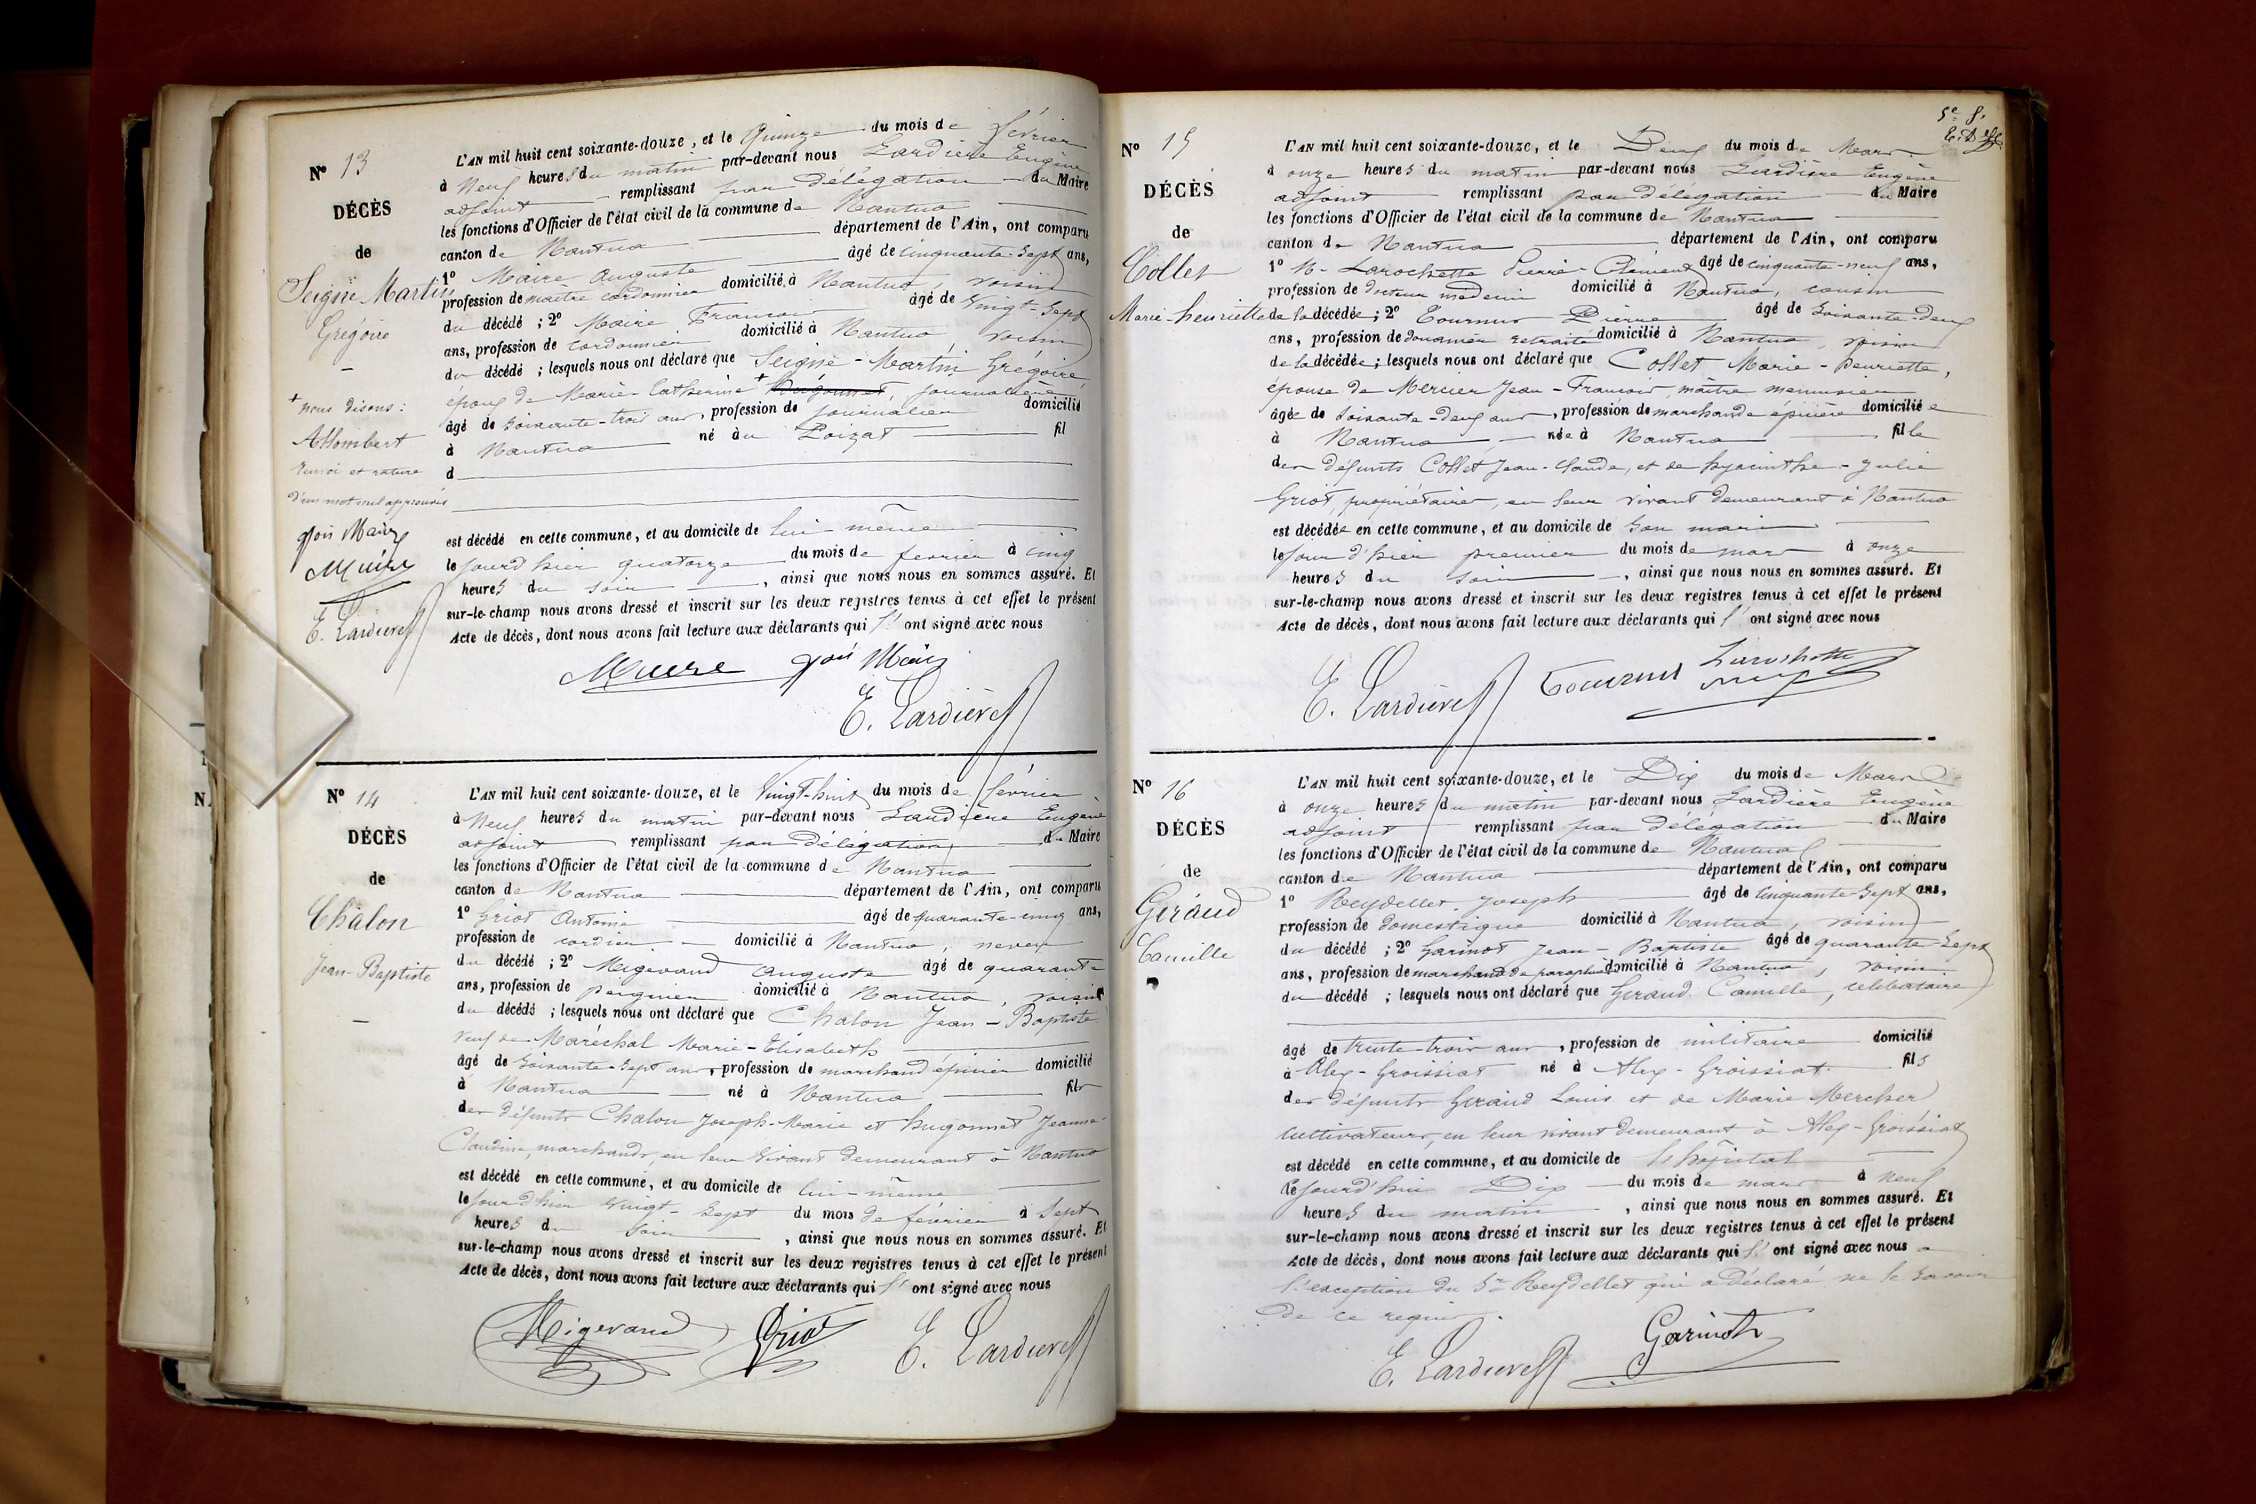 N° 13
DÉCÈS
de
Seigne Martin
Grégoire
+ nous disons :
Allombert
renvoi et rature
d'un mot nul approuvés
E. Lardière
L'AN mil huit cent soixante-douze, et le Quinze du mois de février
à Neuf heures du matin par-devant nous Lardière Eugène
adjoint remplissant par délégation du Maire
les fonctions d'Officier de l'état civil de la commune de Nantua
canton de Nantua département de l'Ain, ont comparu
1° Maire Auguste âgé de cinquante-sept ans,
profession de maître cordonnier domicilié à Nantua, voisin
du décédé ; 2° Maire François âgé de vingt-sept
ans, profession de cordonnier domicilié à Nantua voisin
du décédé ; lesquels nous ont déclaré que Seigne-Martin Grégoire,
époux de Marie Catherine + Hugonnet, journalière
âgé de soixante-trois ans, profession de journalier domicilié
à Nantua né au Poizat fil
d
est décédé en cette commune, et au domicile de lui-même
le jour d'hier quatorze du mois de février à cinq
heures du soir, ainsi que nous nous en sommes assuré. Et
sur-le-champ nous avons dressé et inscrit sur les deux registres tenus à cet effet le présent
Acte de décès, dont nous avons fait lecture aux déclarants qui l' ont signé avec nous
E. Lardière
N° 14
DÉCÈS
de
Chalon
Jean-Baptiste
L'AN mil huit cent soixante-douze, et le Vingt-huit du mois de février
à Neuf heures du matin par-devant nous Lardière Eugène
adjoint remplissant par délégation du Maire
les fonctions d'Officier de l'état civil de la commune de Nantua
canton de Nantua département de l'Ain, ont comparu
1° Griot Antoine âgé de quarante-cinq ans,
profession de cordier domicilié à Nantua, neveu
du décédé ; 2° Migevand Auguste âgé de quarante
ans, profession de domicilié à Nantua, voisin
du décédé ; lesquels nous ont déclaré que Chalon Jean-Baptiste
veuf de Maréchal Marie-Elisabeth
âgé de soixante-sept ans, profession de marchand épicier domicilié
à Nantua né à Nantua fils
des défunts Chalon Joseph-Marie et Hugonnet Jeanne-
Claudine, marchands, en leur vivant demeurant à Nantua
est décédé en cette commune, et au domicile de lui-même
le jour d'hier vingt-sept du mois de février à sept
heures du soir, ainsi que nous nous en sommes assuré. Et
sur-le-champ nous avons dressé et inscrit sur les deux registres tenus à cet effet le présent
Acte de décès, dont nous avons fait lecture aux déclarants qui l' ont signé avec nous
Migevand Griot E. Lardière
N° 15
DÉCÈS
de
Collet
Marie-henriette
L'AN mil huit cent soixante-douze, et le Deux du mois de Mars
à onze heures du matin par-devant nous Lardière Eugène
adjoint remplissant par délégation du Maire
les fonctions d'Officier de l'état civil de la commune de Nantua
canton de Nantua département de l'Ain, ont comparu
1° M. Larochette Pierre-Clément âgé de cinquante-neuf ans,
profession de docteur medecin domicilié à Nantua, cousin
de la décédée ; 2° Tournus Pierre âgé de soixante-deux
ans, profession de douanier retraité domicilié à Nantua, voisin
de la décédée ; lesquels nous ont déclaré que Collet Marie-henriette,
épouse de Mercier Jean-François, maître menuisier
âgée de soixante-deux ans, profession de marchande épicière domiciliée
à Nantua née à Nantua fille
des défunts Collet Jean-Claude, et de hyacinthe-Julie
Griot, propriétaires, en leur vivant demeurant à Nantua
est décédée en cette commune, et au domicile de son mari
le jour d'hier premier du mois de mars à onze
heures du soir, ainsi que nous nous en sommes assuré. Et
sur-le-champ nous avons dressé et inscrit sur les deux registres tenus à cet effet le présent
Acte de décès, dont nous avons fait lecture aux déclarants qui l' ont signé avec nous
E. Lardière Tournus Larochette
N° 16
DÉCÈS
de
Géraud
Camille
L'AN mil huit cent soixante-douze, et le Dix du mois de Mars
à onze heures du matin par-devant nous Lardière Eugène
adjoint remplissant par délégation du Maire
les fonctions d'Officier de l'état civil de la commune de Nantua
canton de Nantua département de l'Ain, ont comparu
1° Reydellet Joseph âgé de cinquante-sept ans,
profession de domestique domicilié à Nantua, voisin
du décédé ; 2° Garinot Jean-Baptiste âgé de quarante-sept
ans, profession de marchand de parapluies domicilié à Nantua, voisin
du décédé ; lesquels nous ont déclaré que Géraud Camille, célibataire
âgé de trente-trois ans, profession de militaire domicilié
à Alex-Groissiat né à Alex-Groissiat fils
des défunts Géraud Louis et de Marie Mercher
cultivateurs, en leur vivant demeurant à Alex-Groissiat
est décédé en cette commune, et au domicile de l'hôpital
le jourd'hui Dix du mois de mars à neuf
heures du matin, ainsi que nous nous en sommes assuré. Et
sur-le-champ nous avons dressé et inscrit sur les deux registres tenus à cet effet le présent
Acte de décès, dont nous avons fait lecture aux déclarants qui l' ont signé avec nous à
l'exception du Sr Reydellet qui a déclaré ne le savoir
de ce requis.
E. Lardière Garinot